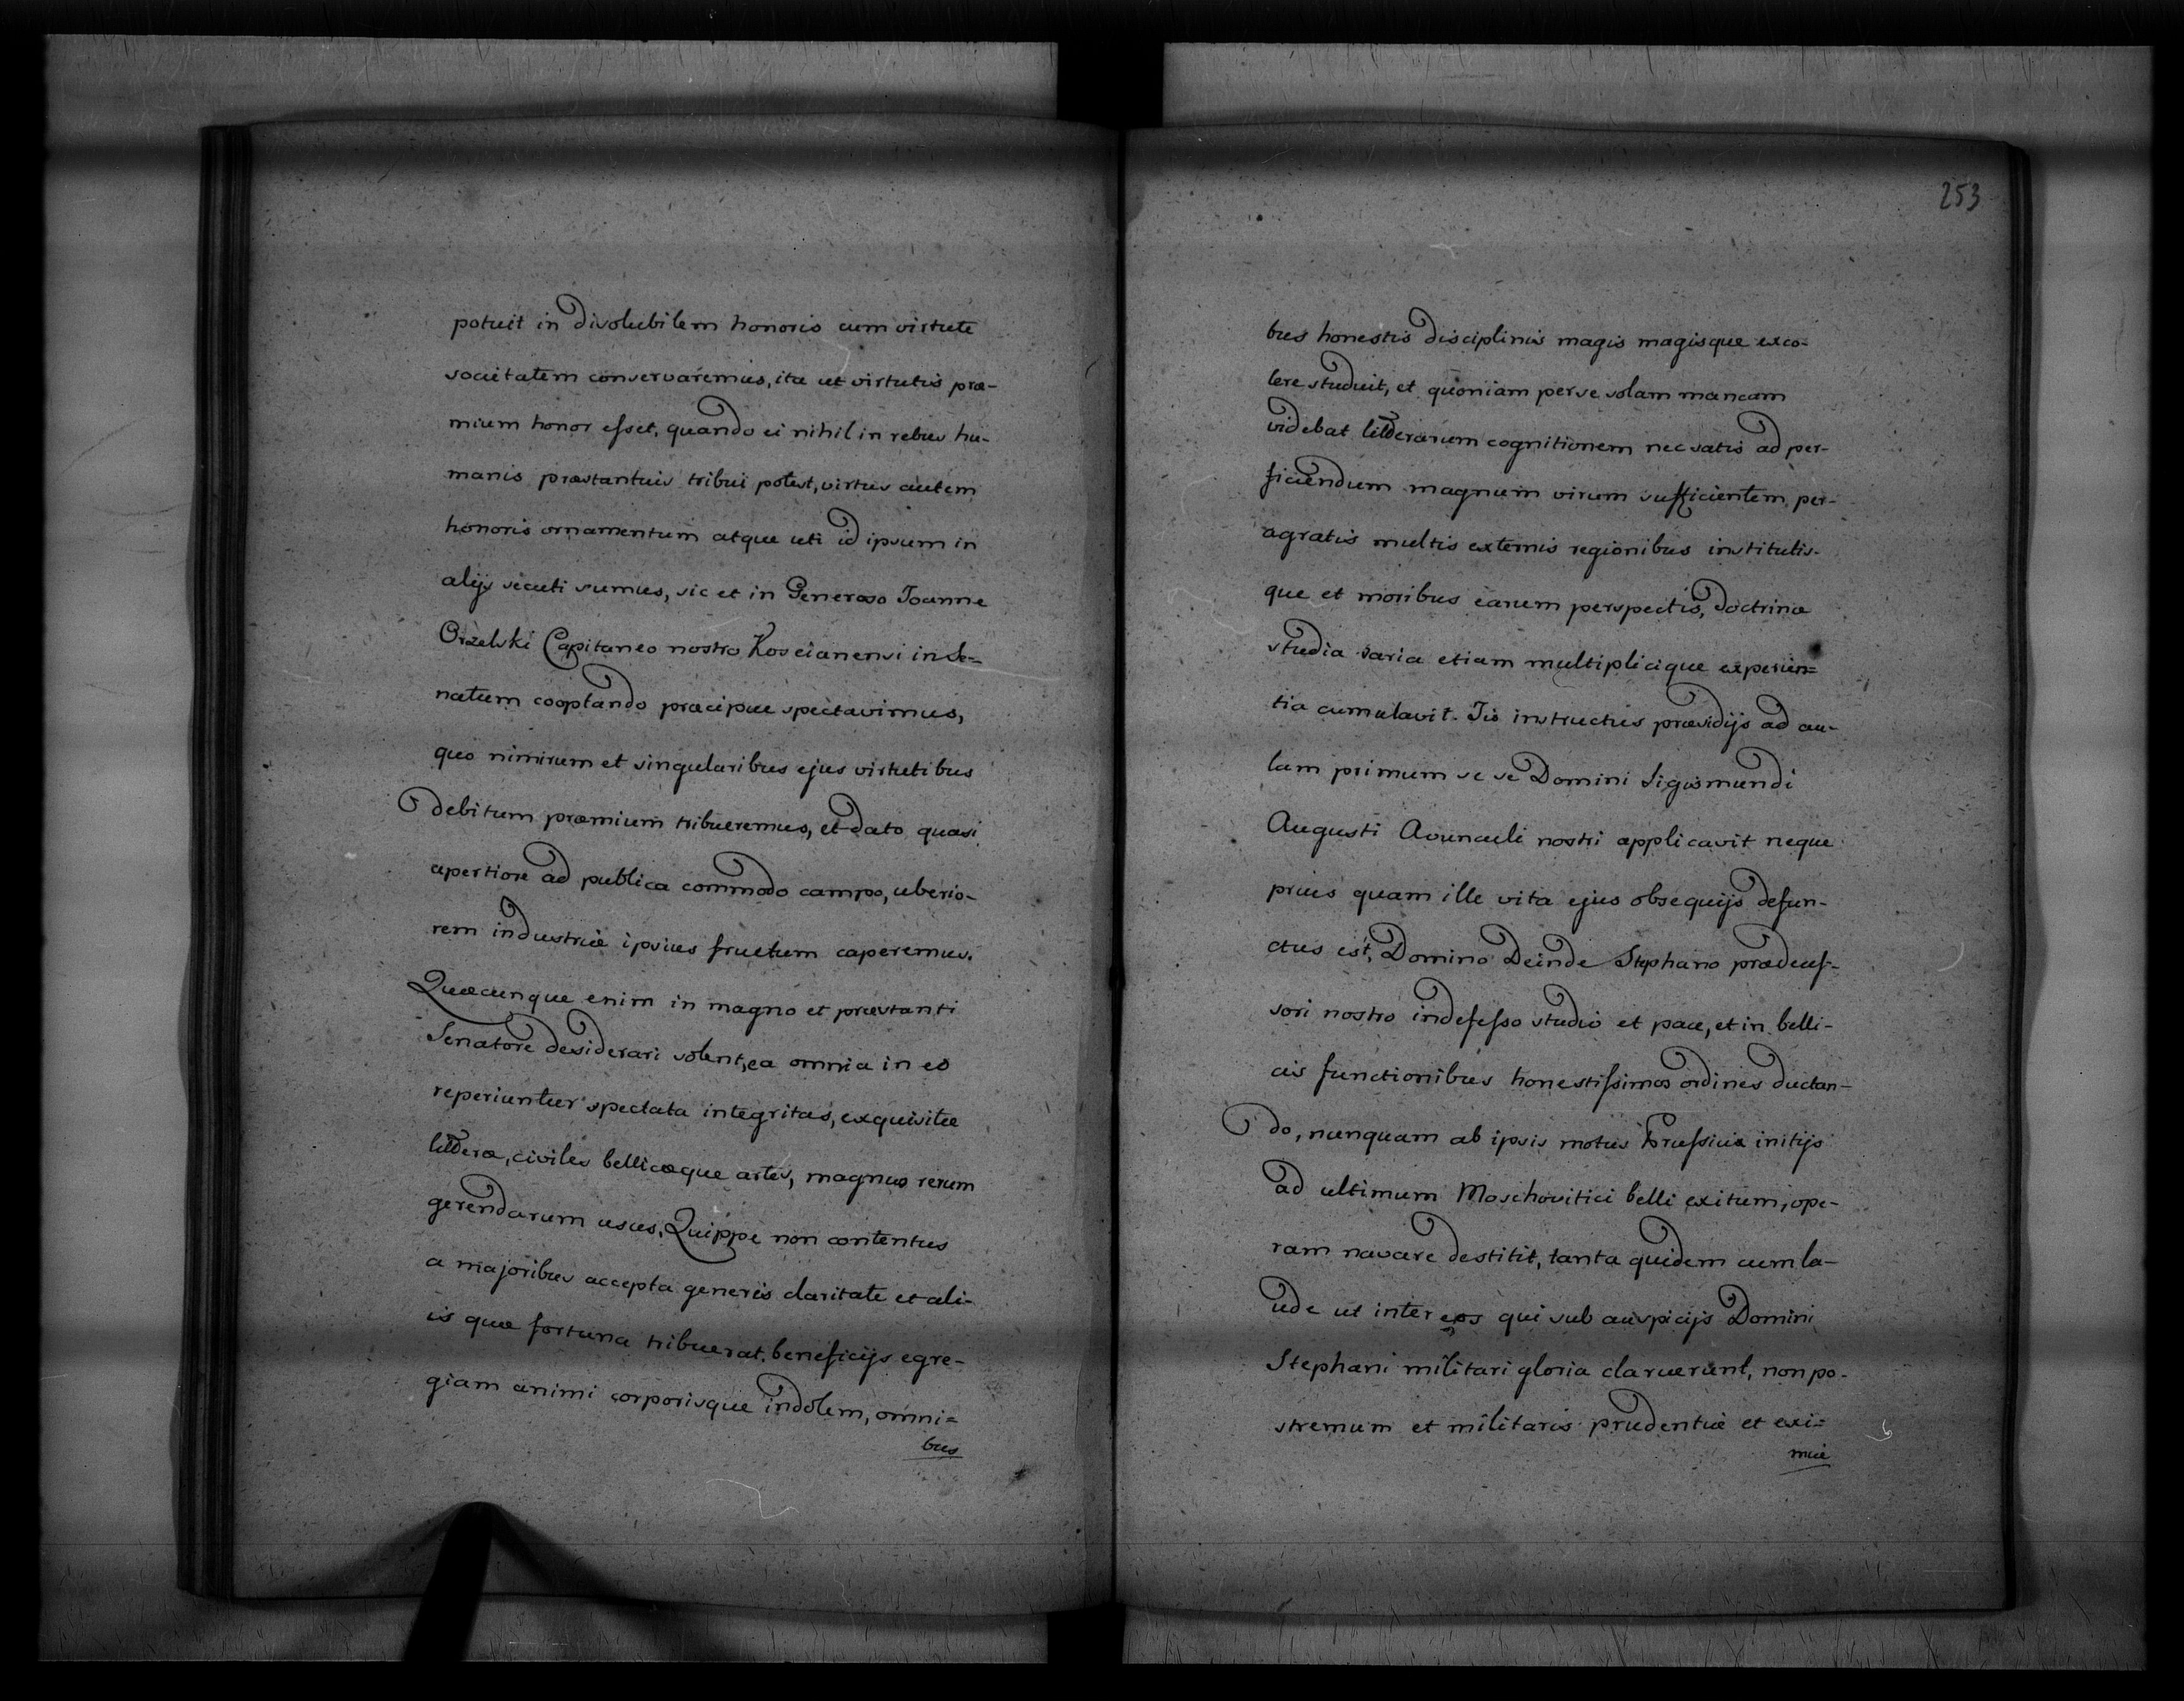 potuit in divolubilem honoris cum virtute
societatem conservaremus, ita ut virtutis præ-
mium honor esset, quando ei nihil in rebus hu-
manis præstantius tribui potest, virtus autem
honoris ornamentum atque uti id ipsum in
alijs secuti sumus, sic et in Generoso Joanne
Orzelski Capitaneo nostro Koscianensi in Se=
natum cooptando præcipue spectavimus,
quo nimirum et singularibus ejus virtutibus
debitum præmium tribueremus, et dato quasi
apertiore ad publica commodo campo, uberio-
rem industriæ ipsius fructum caperemus.
Quæcunque enim in magno et præstanti
Senatore desiderari solent, ea omnia in eo
reperiuntur spectata integritas, exquisitæ
litteræ, civiles bellicæque artes, magnus rerum
gerendarum usus, Quippe non contentus
a majoribus accepta generis claritate et ali-
is quæ fortuna tribuerat, beneficijs egre-
giam animi corporisque indolem, omni=
bus
253
bus honestis disciplinis magis magisque exco-
lere studuit, et quoniam per se solam mancam
videbat litterarum cognitionem nec satis ad per-
ficiendum magnum virum sufficientem, per-
agratis multis externis regionibus institutis-
que et moribus earum perspectis, doctrinæ
studia varia etiam multiplicique experien=
tia cumulavit. Iis instructus præsidijs ad au-
lam primum se se Domini Sigismundi
Augusti Avunculi nostri applicavit neque
prius quam ille vita ejus obsequijs defun-
ctus est, Domino Deinde Stephano prædeces-
sori nostro indefesso studio et pace, et in belli-
cis functionibus honestissimos ordines ductan-
do, nunquam ab ipsis motus Prussiciæ initijs
ad ultimum Moschovitici belli exitum, ope-
ram navare destitit, tanta quidem cum la-
ude ut inter eos qui sub auspicijs Domini
Stephani militari gloria claruerunt, non po-
stremum et militaris prudentiæ et exi=
miæ